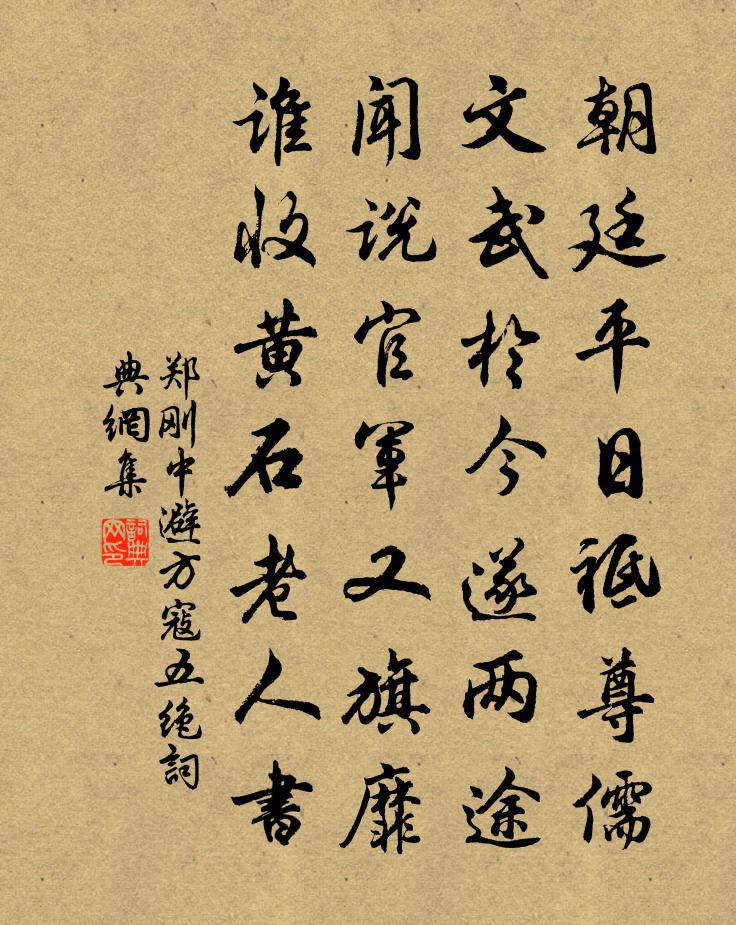 朝廷平日祗尊儒
文武於今遂两途
闻说官军又旗靡
谁收黄石老人書
郑刚中避方寇五绝詞
典網集
詞典
网印